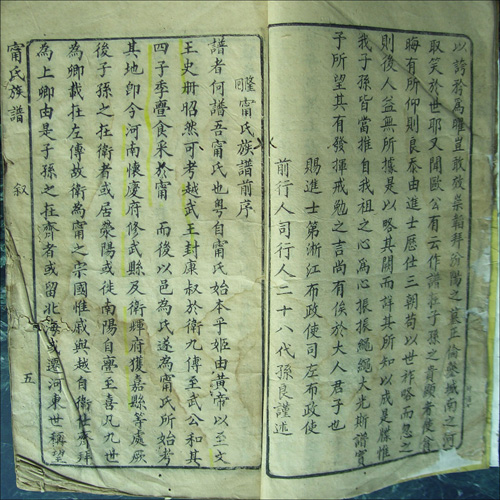 以誇矜為豈敢效崇韜拜汾陽之墓正倫鑿城南之河
取笑於世耶又聞歐公有云作譜在子孫之貴顯者使
晦有所仰則良忝由進士歷仕三朝苟以世祚略而忽之
則後人益無所據是以略其闕而詳其所知以成是牒惟
我子孫皆當推自我祖之心為心振振繩繩大先斯譜實
予所望其有發揮戒勉之言尚有俟於大人君子也
賜進士第浙江布政使司左布政使
前行人司行人二十八代孫良謹述
隆甯氏族譜前序
譜者何譜吾甯氏也粵自甯氏始本乎姬由黃帝以至文
王史册昭然可考越武王封康叔於衛九傳至武公和其
四子季亹食采於甯 而後以邑為氏遂為甯氏所始考
其地即今河南懷慶府修武縣及衛輝府獲嘉縣等處厥
後子孫之在衛者或居滎陽或徙南陽自亹至喜凡九世
為卿載在左傳故衛為甯之宗國惟戚與越自衛仕齊拜
為上卿由是子孫之在齊者或留北海或遷河東世稱望
甯氏族譜 叙 五